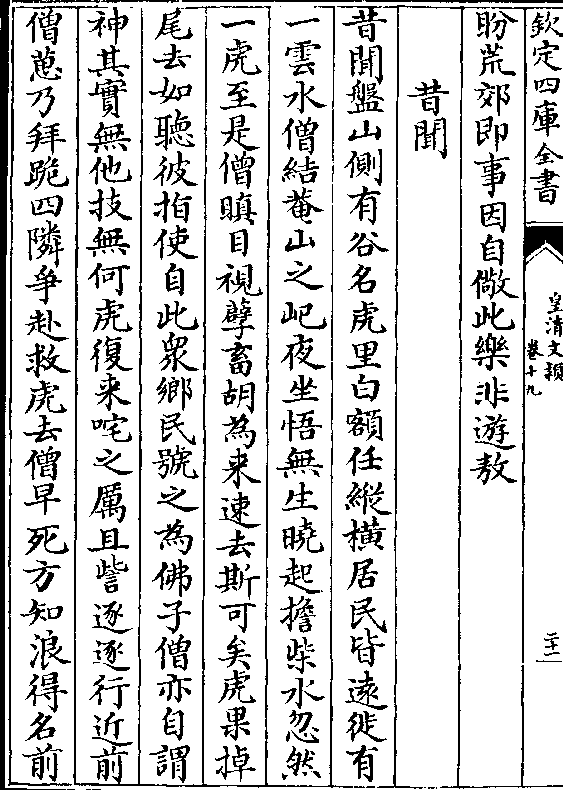 欽定四庫全書
皇清文穎
卷十九
二十一
盼荒郊即事因自儆此樂非遊敖
昔聞
昔聞盤山側有谷名虎里白額任縱橫居民皆遠徙有
一雲水僧結菴山之屺夜坐悟無生曉起擔柴水忽然
一虎至是僧瞋目視孽畜胡為来速去斯可矣虎果掉
尾去如聽彼指使自此衆鄉民號之為佛子僧亦自謂
神其實無他技無何虎復来咤之厲且訾逐逐行近前
僧蒽乃拜跪四隣爭赴救虎去僧早死方知浪得名前